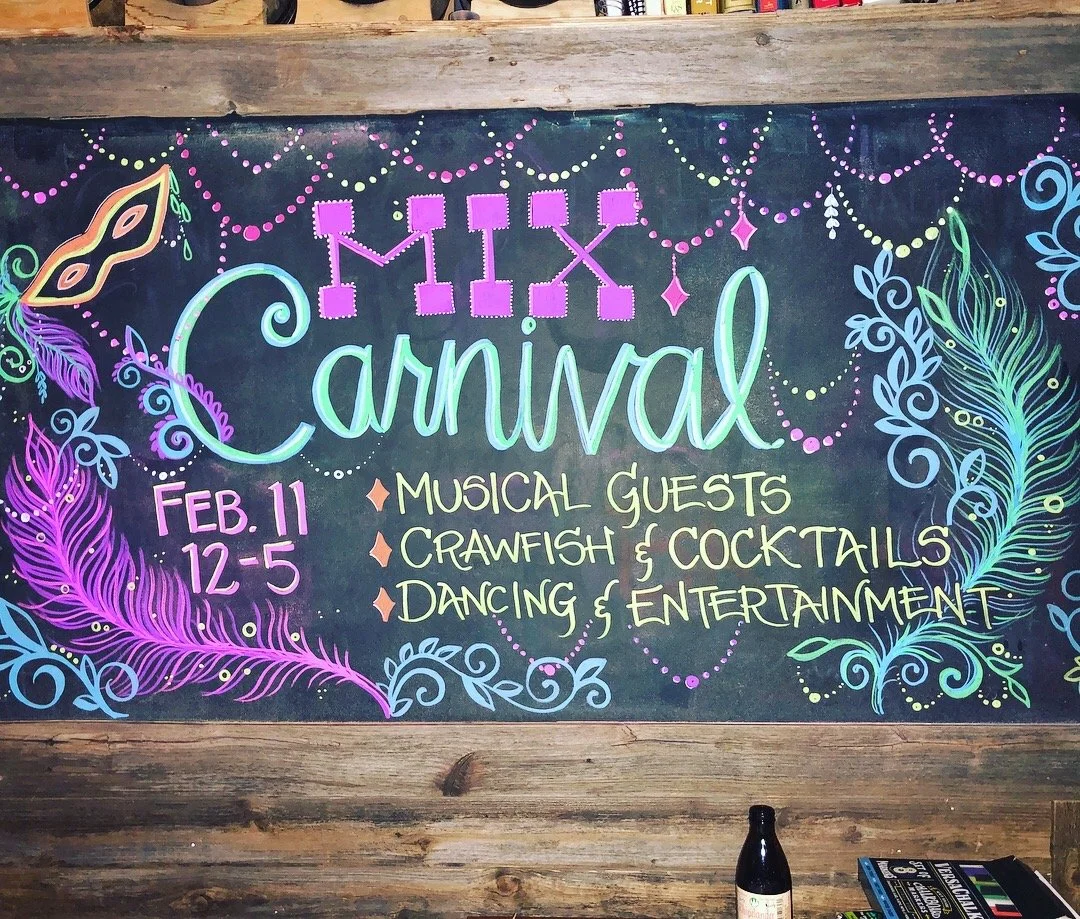 MIX
Carnival
FEB. 11
12-5
MUSICAL GUESTS
CRAWFISH & COCKTAILS
DANCING & ENTERTAINMENT
VERSACHALK